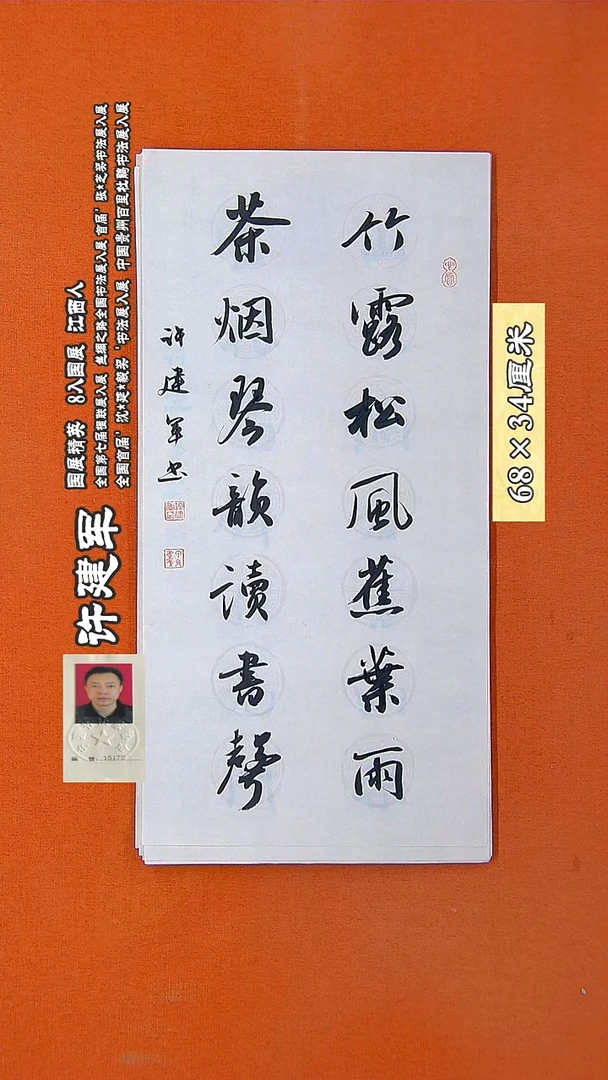 竹露松風蕉葉雨
茶烟琴韻读書聲
许建军书
68×34厘米
许建军
国展精英 8入国展 江西人
全国第七届楹联展入展 丝绸之路全国书法展入展 首届'张★芝奖书法展入展
全国首届'沈★延★毅奖'书法展入展 中国贵州百里杜鹃书法展入展
編 號: 1517